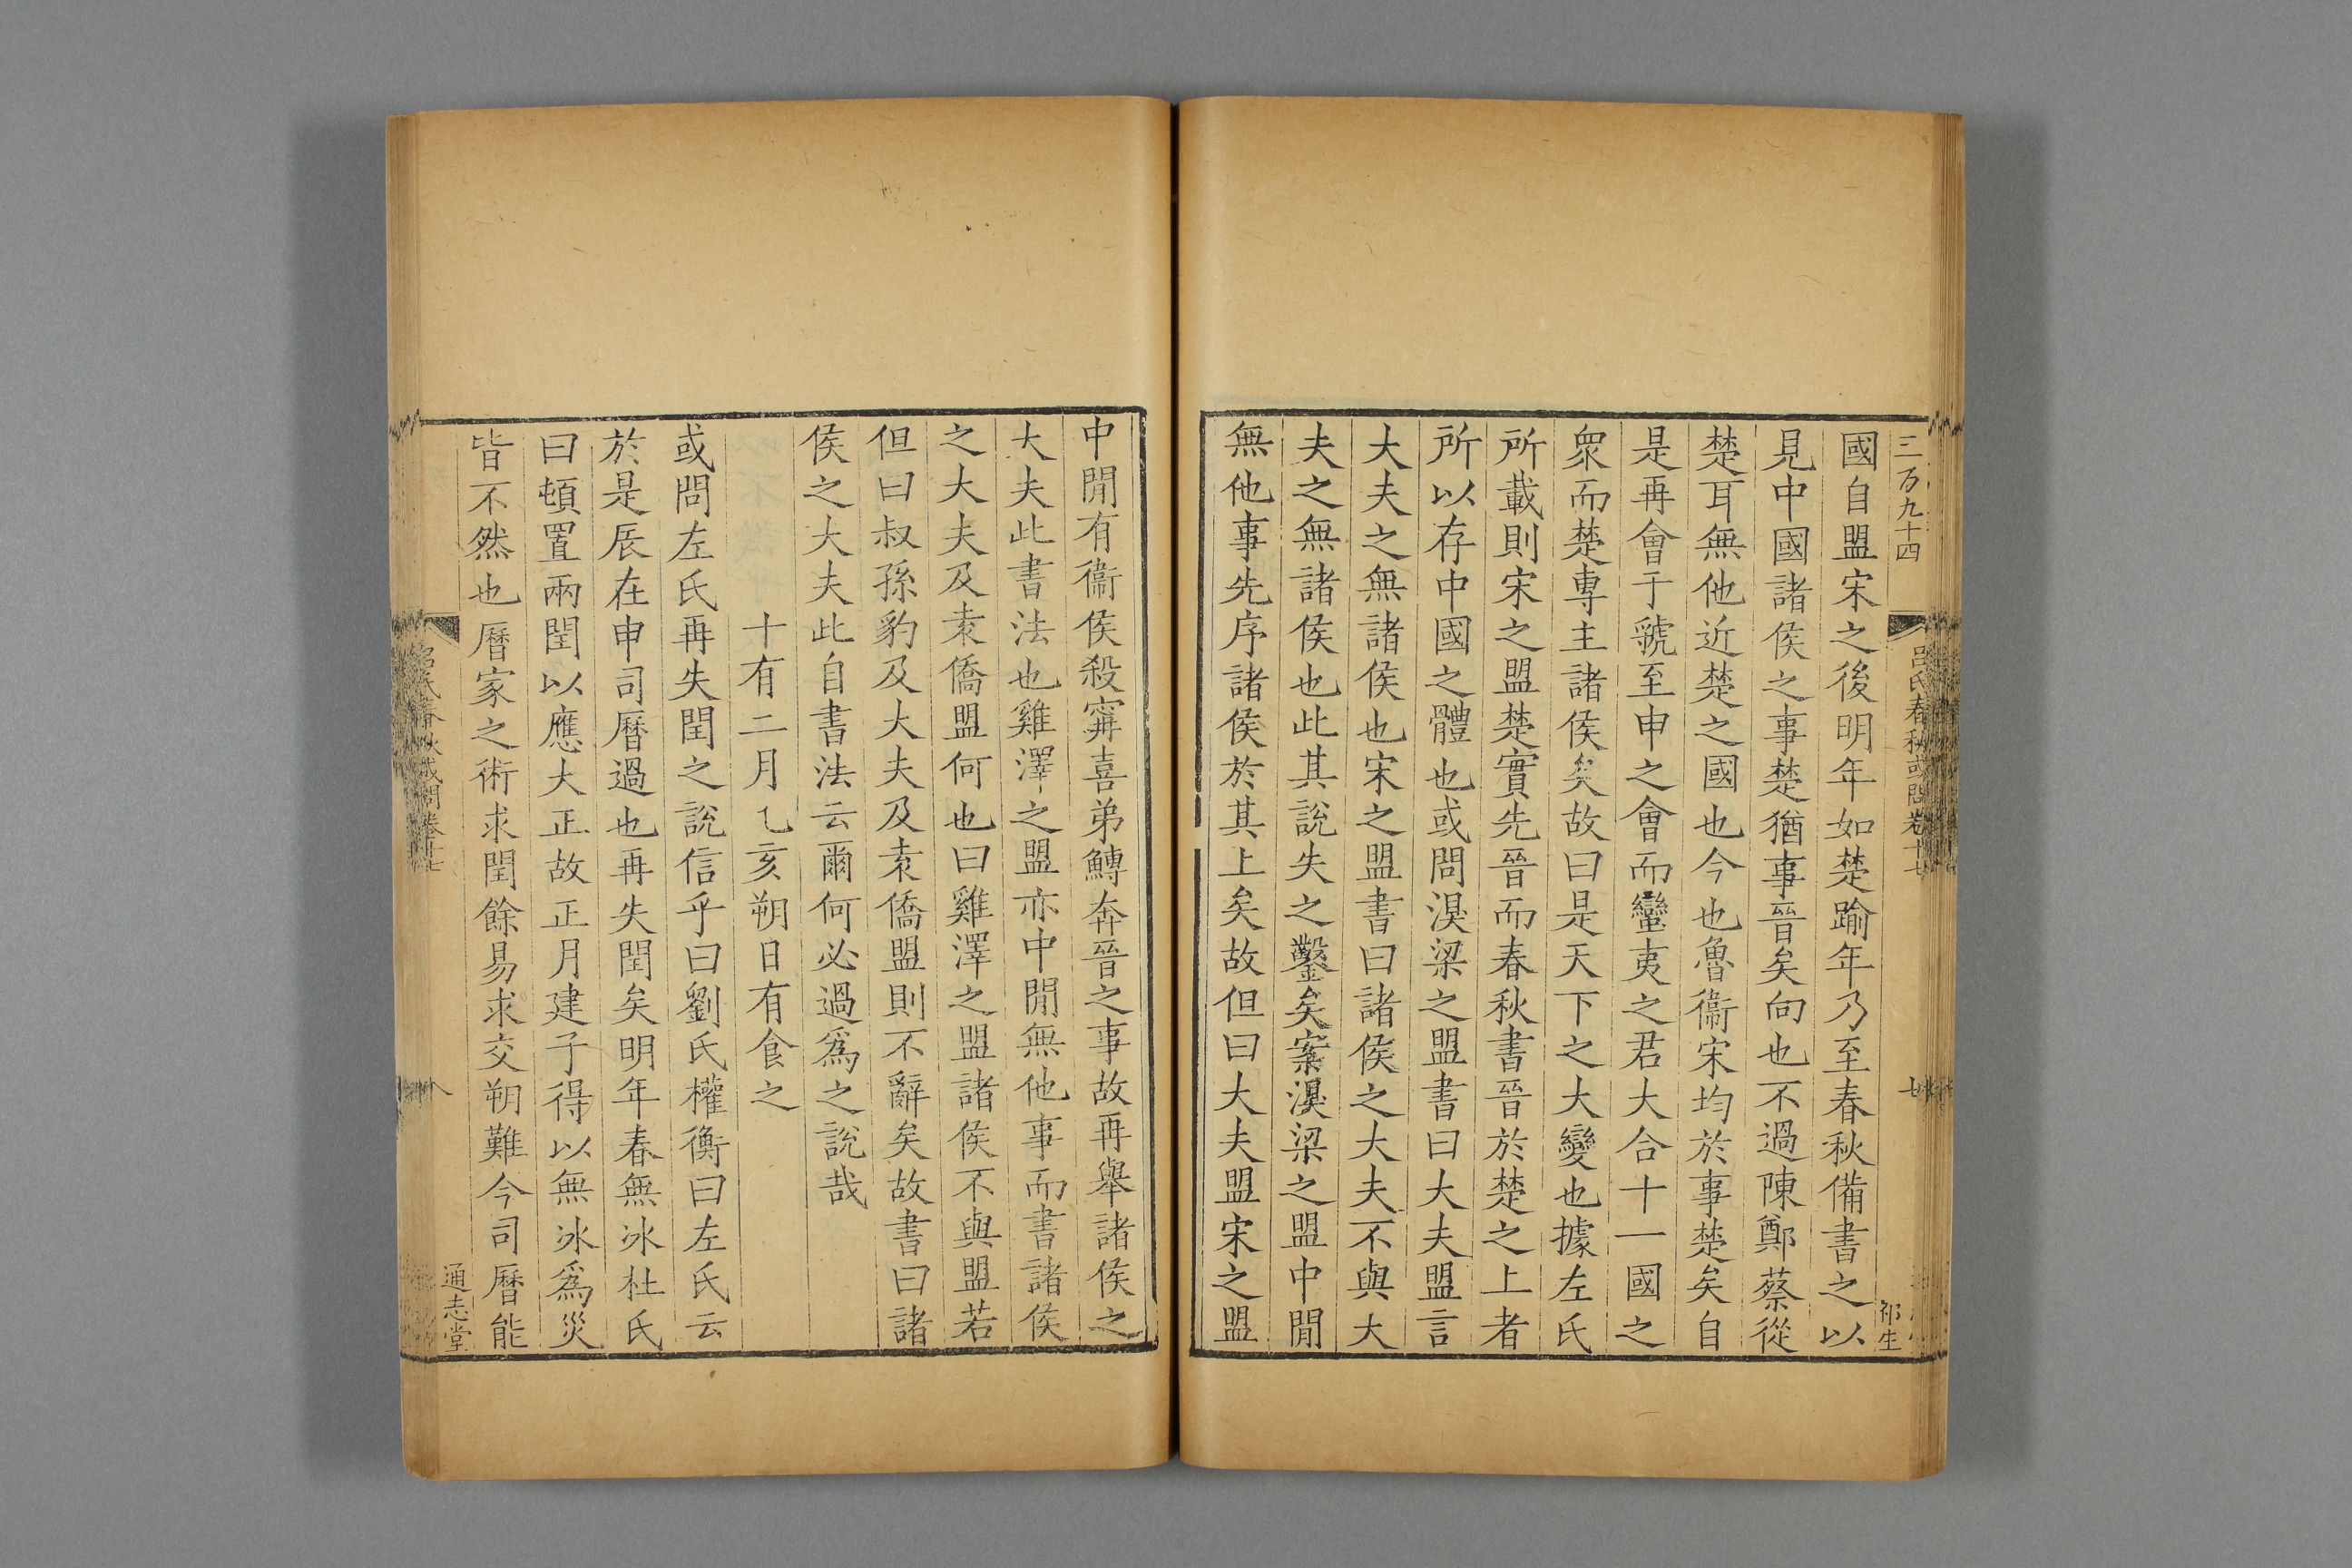 三百九十四
呂氏春秋或問卷十七
祁生
國自盟宋之後明年如楚踰年乃至春秋備書之以
見中國諸侯之事楚猶事晉矣向也不過陳鄭蔡從
楚耳無他近楚之國也今也魯衞宋均於事楚矣自
是再會于虢至申之會而蠻夷之君大合十一國之
衆而楚專主諸侯矣故曰是天下之大變也據左氏
所載則宋之盟楚實先晉而春秋書晉於楚之上者
所以存中國之體也或問湨梁之盟書曰大夫盟言
大夫之無諸侯也宋之盟書曰諸侯之大夫不與大
夫之無諸侯也此其說失之鑿矣案湨梁之盟中閒
無他事先序諸侯於其上矣故但曰大夫盟宋之盟
中閒有衞侯殺甯喜弟鱄奔晉之事故再舉諸侯之
大夫此書法也雞澤之盟亦中閒無他事而書諸侯
之大夫及袁僑盟何也曰雞澤之盟諸侯不與盟若
但曰叔孫豹及大夫及袁僑盟則不辭矣故書曰諸
侯之大夫此自書法云爾何必過爲之說哉
十有二月乙亥朔日有食之
或問左氏再失閏之說信乎曰劉氏權衡曰左氏云
於是辰在申司曆過也再失閏矣明年春無冰杜氏
曰頓置兩閏以應大正故正月建子得以無冰爲災
皆不然也曆家之術求閏餘易求交朔難今司曆能
呂氏春秋或問卷十七
通志堂